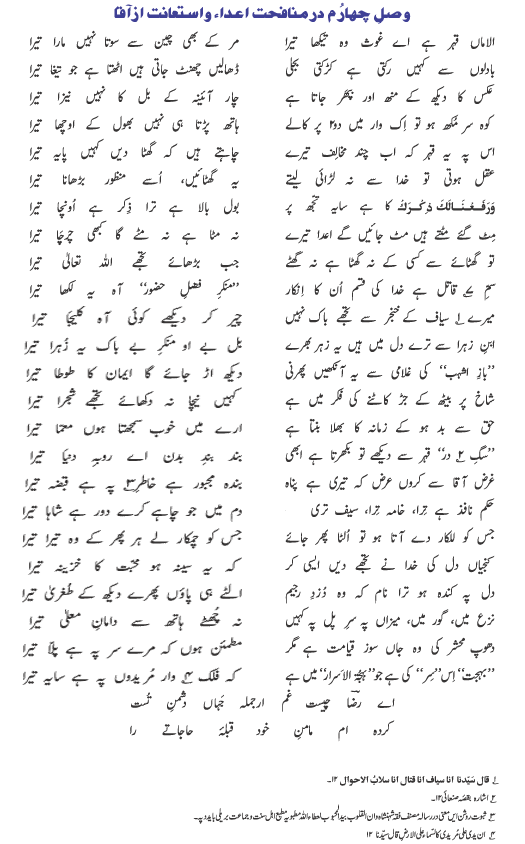 وصلِ چہارُم در منافحتِ اعداء و استعانت از آقا
الاماں قہر ہے اے غوث وہ تیکھا تیرا    مر کے بھی چین سے سوتا نہیں مارا تیرا
بادلوں سے کہیں رکتی ہے کڑکتی بجلی    ڈھالیں چھنٹ جاتی ہیں اٹھتا ہے جو تیغا تیرا
عکس کا دیکھ کے منھ اور بپھر جاتا ہے    چار آئینہ کے بل کا نہیں نیزا تیرا
کوہ سر مکھ ہو تو اِک وار میں دو ۲ پر کالے    ہاتھ پڑتا ہی نہیں بھول کے اوچھا تیرا
اس پہ یہ قہر کہ اب چند مخالف تیرے    چاہتے ہیں کہ گھٹا دیں کہیں پایہ تیرا
عقل ہوتی تو خدا سے نہ لڑائی لیتے    یہ گھٹائیں، اُسے منظور بڑھانا تیرا
وَرَفَعْنَا لَكَ ذِكْرَكَ کا ہے سایہ تجھ پر    بول بالا ہے ترا ذِکر ہے اُونچا تیرا
مِٹ گئے مٹتے ہیں مٹ جائیں گے اعدا تیرے    نہ مٹا ہے نہ مٹے گا کبھی چرچا تیرا
تو گھٹائے سے کسی کے نہ گھٹا ہے نہ گھٹے    جب بڑھائے تجھے اللہ تعالیٰ تیرا
سمِّ قاتل ہے خدا کی قسم اُن کا اِنکار    ”منکرِ فضلِ حضور“ آہ یہ لکھا تیرا
میرے ۱ سیاف کے خنجر سے تجھے باک نہیں    چیر کر دیکھے کوئی آہ کلیجا تیرا
ابنِ زہرا سے ترے دل میں ہیں یہ زہر بھرے    بل بے او منکرِ بے باک یہ زُہرا تیرا
”بازِ اشہب“ کی غلامی سے یہ آنکھیں پھرنی    دیکھ اڑ جائے گا ایمان کا طوطا تیرا
شاخ پر بیٹھ کے جڑ کاٹنے کی فکر میں ہے    کہیں نیچا نہ دکھائے تجھے شجرا تیرا
حق سے بد ہو کے زمانہ کا بھلا بنتا ہے    ارے میں خوب سمجھتا ہوں معما تیرا
”سگِ ۲ در“ قہر سے دیکھے تو بکھرتا ہے ابھی    بند بندِ بدن اے روبہِ دنیا تیرا
غرض آقا سے کروں عرض کہ تیری ہے پناہ    بندہ مجبور ہے خاطر ۳ پہ ہے قبضہ تیرا
حکم نافذ ہے تِرا، خامہ تِرا، سیف تری    دم میں جو چاہے کرے دور ہے شاہا تیرا
جس کو للکار دے آتا ہو تو اُلٹا پھر جائے    جس کو چمکار لے ہر پھر کے وہ تیرا تیرا
کنجیاں دل کی خدا نے تجھے دیں ایسی کر    کہ یہ سینہ ہو محبّت کا خزینہ تیرا
دل پہ کندہ ہو ترا نام کہ وہ دُزدِ رجیم    الٹے ہی پاؤں پھرے دیکھ کے طُغریٰ تیرا
نزع میں، گور میں، میزاں پہ سرِ پل پہ کہیں    نہ چُھٹے ہاتھ سے دامانِ معلّٰی تیرا
دھوپ محشر کی وہ جاں سوز قیامت ہے مگر    مطمئن ہوں کہ مرے سر پہ ہے پلّا تیرا
”بہجت“ اِس ”سِر“ کی ہے جو ”بہجۃ الاسرار“ میں ہے    کہ فلک ۴ وار مُریدوں پہ ہے سایہ تیرا
اے رضؔا چیست غم ارجملہ جہاں دشمنِ تُست
کردہ ام مامنِ خود قبلۂ حاجاتے را
۱ قال سیّدنا انا سیاف انا قتال انا سلاب الاحوال ۱۲۔
۲ اشارہ بقصّہ صنعانی ۱۲۔
۳ ثبوت روشن ایں معنی در رسالہ مصنف فقہ شہنشاہ وان القلوب بید المحبوب بعطاء اللہ مطبوعہ مطبع اہل سنت و جماعت بریلی باید دید۔
۴ ان یدی علی مُریدی کالسماء علی الارض قال سیّدنا ۱۲